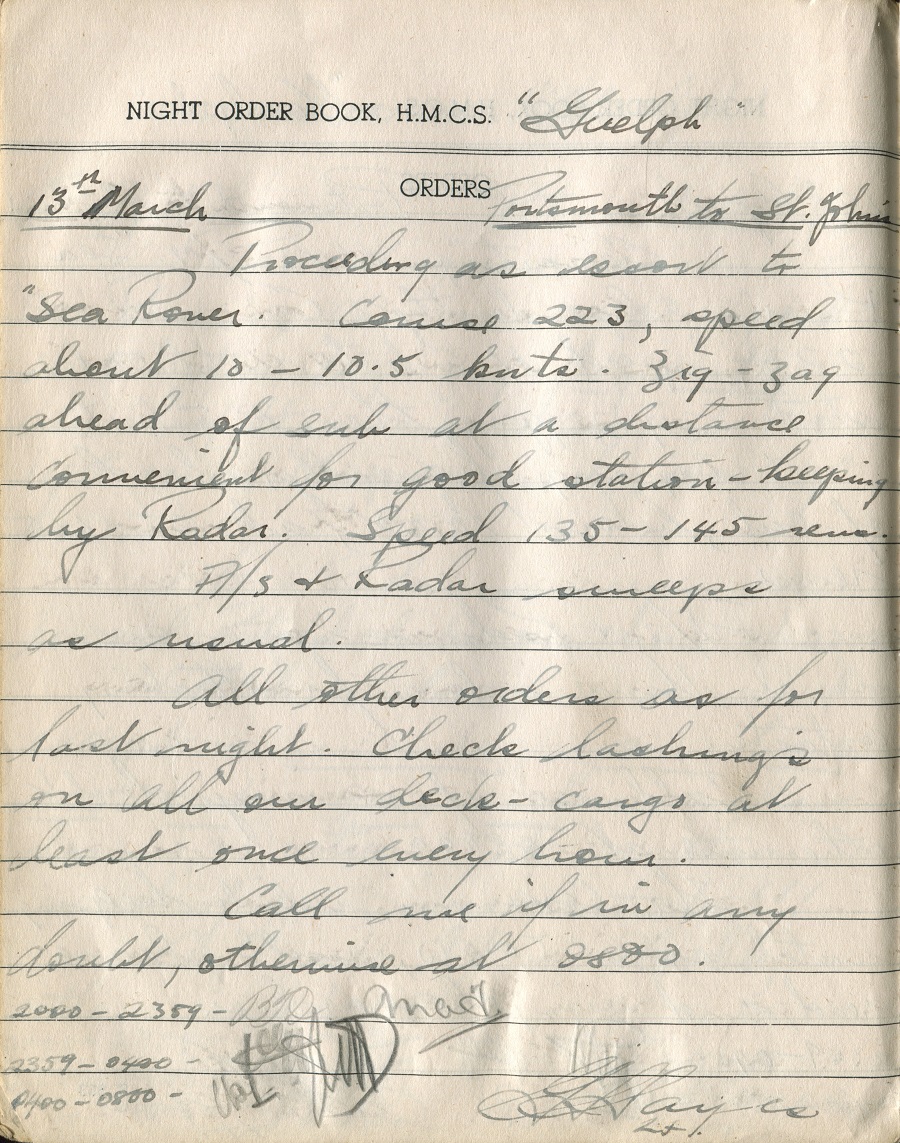 NIGHT ORDER BOOK, H.M.C.S. "Guelph"
ORDERS
13th March Portsmouth to St. John's
Proceeding as escort to
"Sea Rover. Course 223, speed
about 10 - 10.5 knts. Zig-zag
ahead of sub at a distance
convenient for good station-keeping
by Radar. Speed 135-145 revs.
A/s & Radar sweeps
as usual.
All other orders as for
last night. Check lashings
on all our deck-cargo at
least once every hour.
Call me if in any
doubt, otherwise at 0800.
2000-2359-
2359-0400-
0400-0800-
Hayes
Lt.